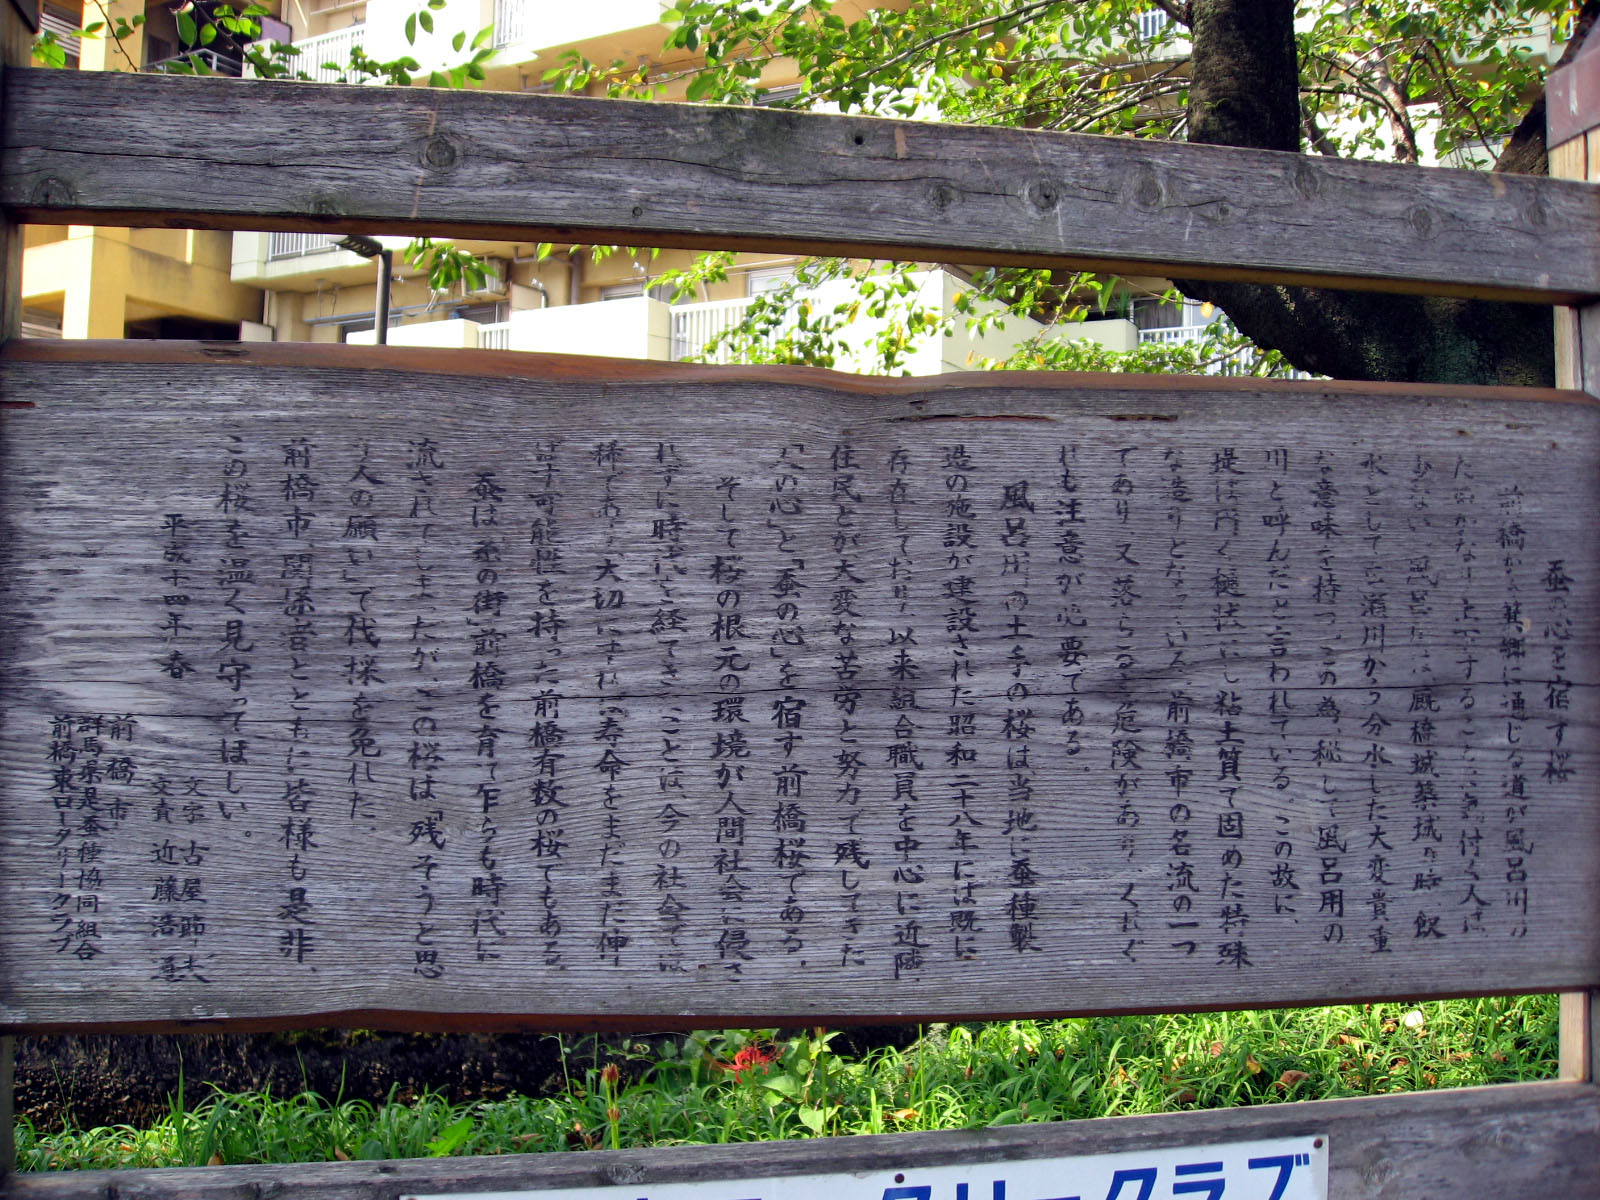 蚕の心を宿す桜
前橋から箕郷に通じる道が風呂川の
たものなり上下することに気付く人は
少ない。風呂川は、厩橋城築城の時、飲
水として広瀬川から分水した大変貴重
な意味を持つ。この為、秘して風呂用の
川と呼んだと言われている。この故に、
堤は円く樋状にし粘土質で固めた特殊
な造りとなっている。前橋市の名流の一つ
であり又落ちると危険があり、くれぐ
れも注意が必要である。
風呂川の土手の桜は当地に蚕種製
造の施設が建設された昭和二十八年には既に
存在しており、以来組合職員を中心に近隣
住民とが、大変な苦労と努力で残してきた
「人の心」と「蚕の心」を宿す前橋桜である。
そして桜の根元の環境が人間社会に侵さ
れずに時代を経てきたことは、今の社会では
稀であり、大切にすれば寿命をまだまだ伸
ばす可能性を持った前橋有数の桜でもある。
蚕は、「糸の街」前橋を育て乍らも時代に
流されてしまったが、この桜は「残そうと思
う人の願い」で伐採を免れた。
前橋市、関係者とともに、皆様も是非、
この桜を温く見守ってほしい。
平成十四年春
文字 古屋節夫
文責 近藤浩
前橋市
群馬県是蚕種協同組合
前橋東ロータリークラブ
タリークラブ